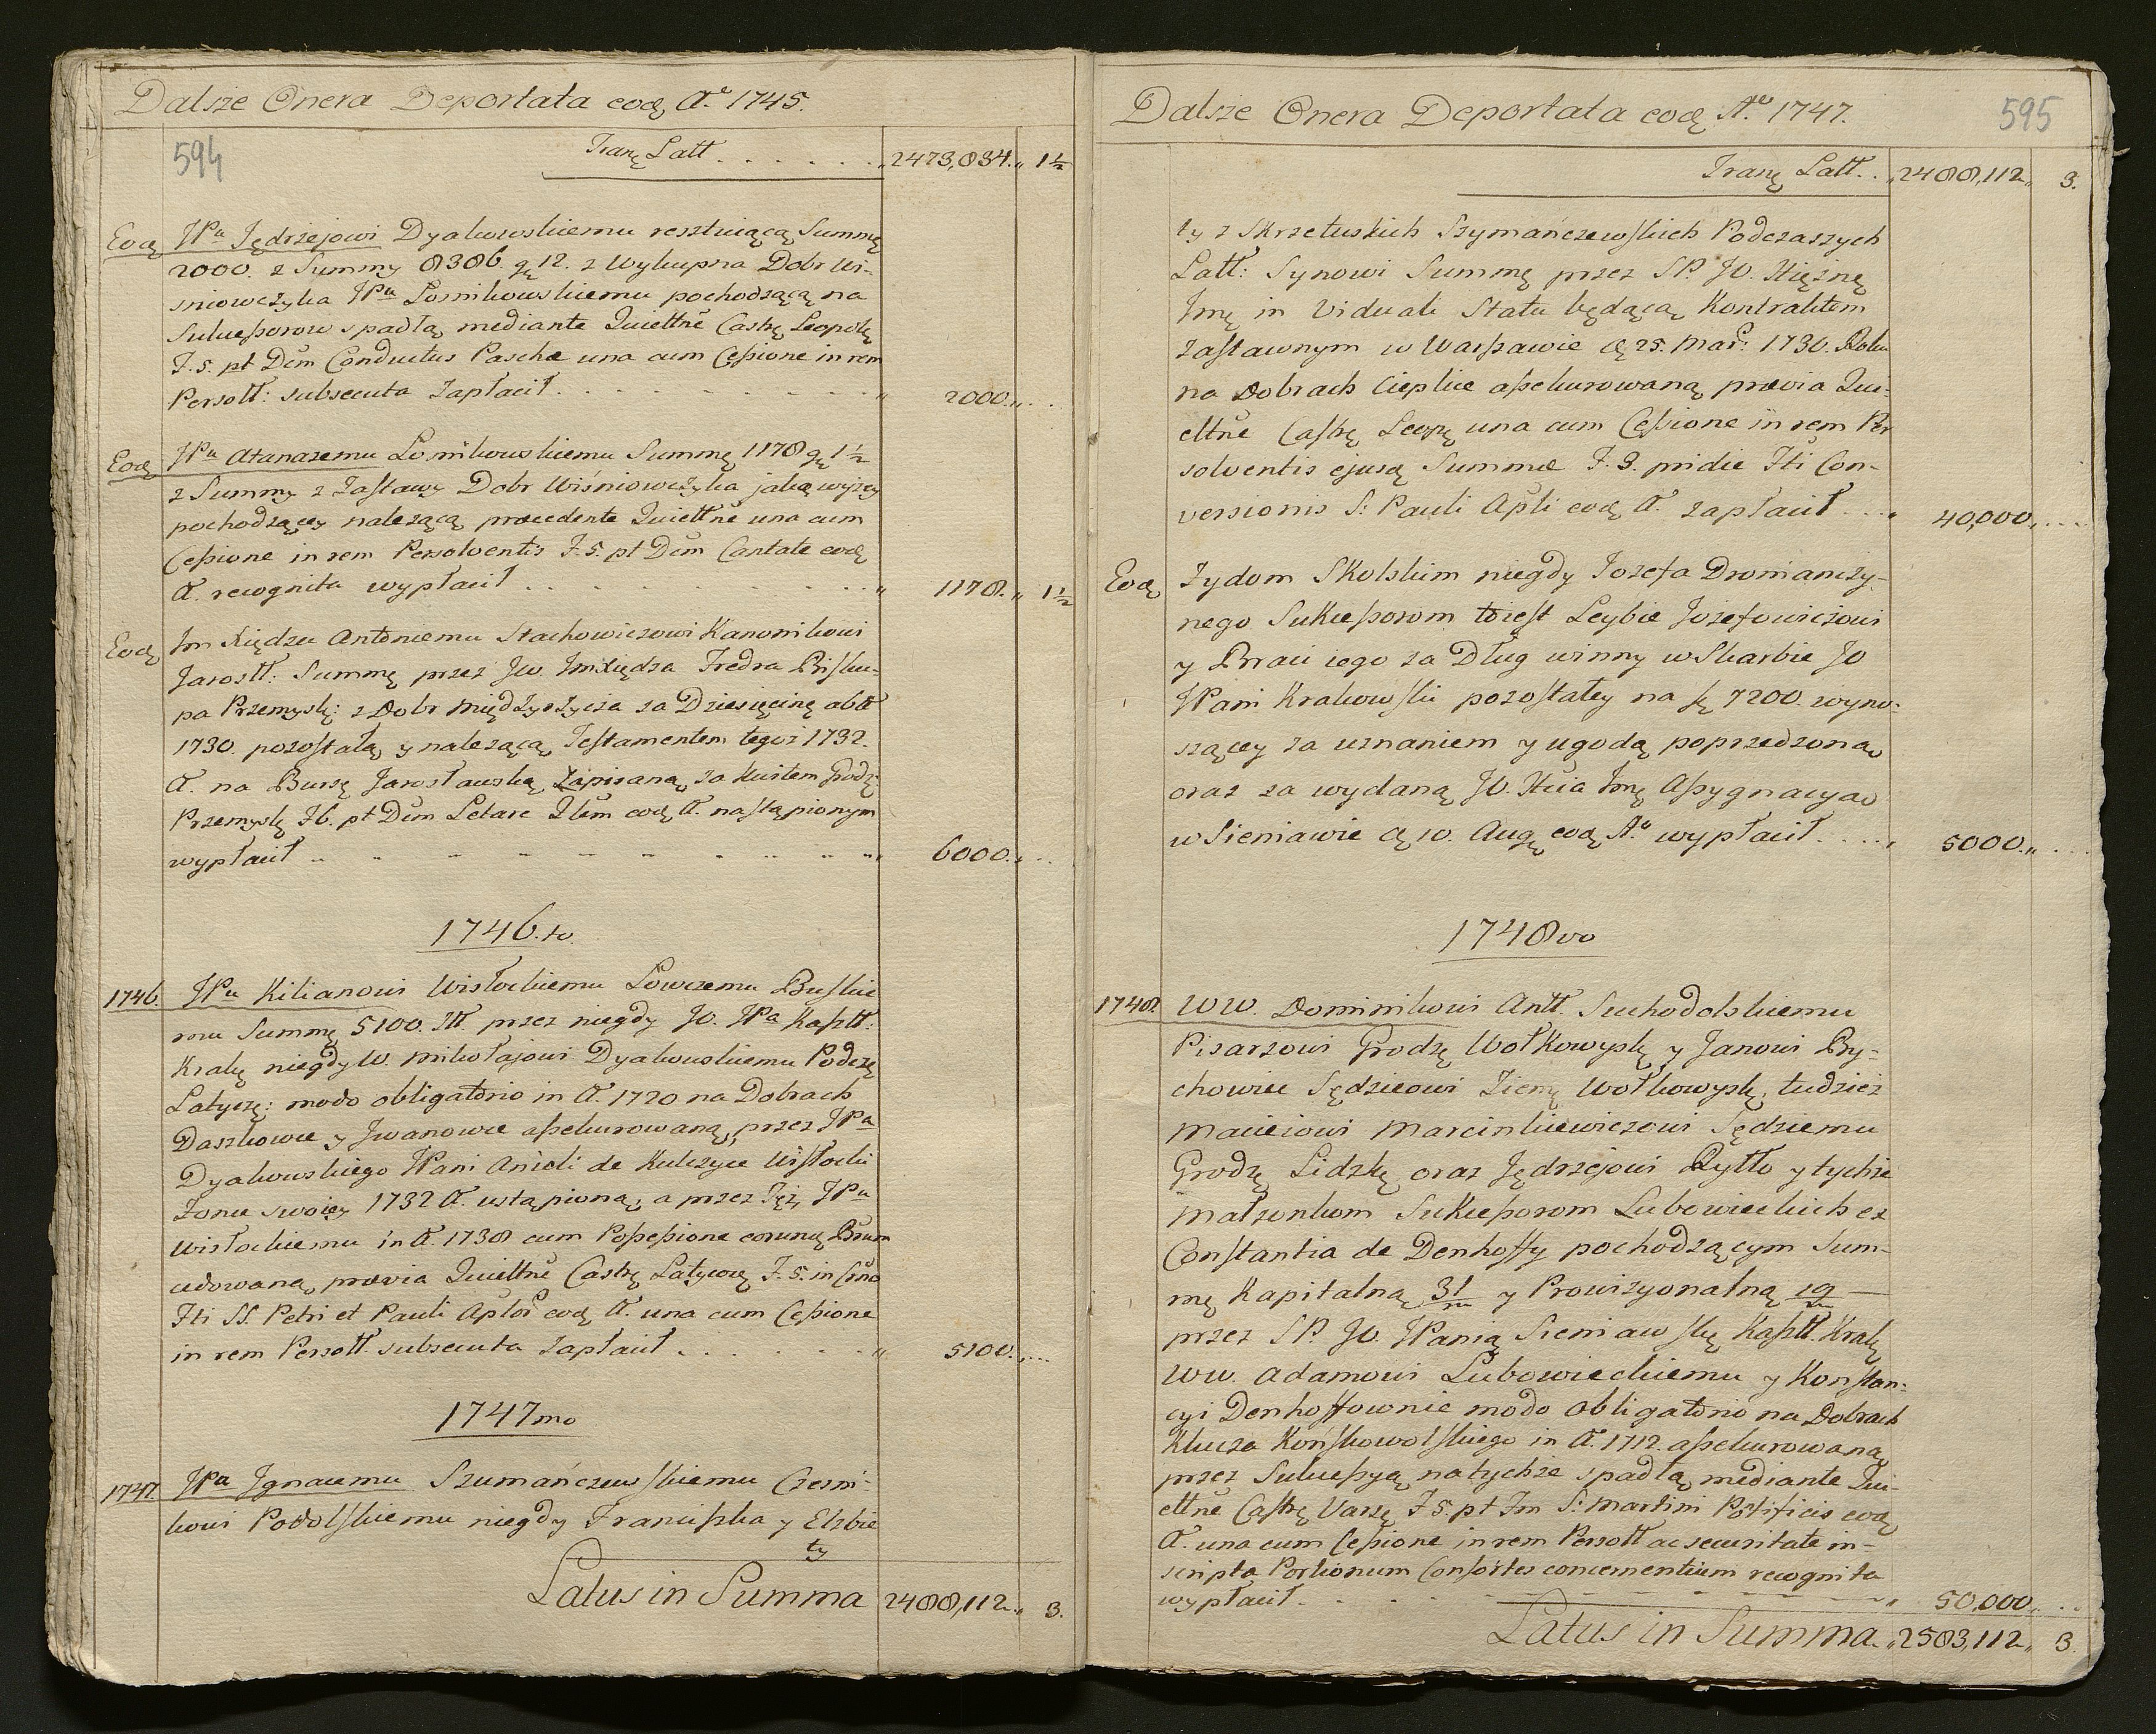 Dalsze Onera Deportata eoą A.o 1745.
594
Tranę Latt . . . . . . . „ 2473,834. „ 1½
Eoą JPu Jędrzejowi Dyakowskiemu resztuiącą Summę
2000. z Summy 8386. gę 12. z Wykupna Dobr Wi-
sniowczyka JPu Łomikowskiemu pochodzącą na
Sukcessorow spadłą mediante Quiettñe Castrę Leopolę
F. 5. pt Dcm Conductus Paschæ una cum Cessione in rem
Persoltt: subsecuta zapłacił . . . . . . . . . „ 2000. „ . .
Eoą JPu Atanazemu Łomikowskiemu Summę 1178 gę 1½
z Summy z Zastawy Dobr Wiśniowczyka jako wyżey
pochodzącey należącą præcedente Quiettñe una cum
Cessione in rem Persolventis F. 5. pt Dcm Cantate eoą
A. recognita wypłacił . . . . . . . . . . . „ 1178. „ 1½
Eoą Jm Xiędzu Antoniemu Stachowiczowi Kanonikowi
Jarostt: Summę przez Jw Jm Xiędza Fredra Bisku-
pa Przemyslę: z Dobr Międzyrzycza za Dziesięcinę ab A
1730. pozostałą y należącą Testamentem tegoż 1732.
A. na Bursę Jarosławską zapisaną za Kwitem Grodz:
Przemyslę F6. pt Dcm Letare Qlem eoą A. nastąpionym
wypłacił . . . . . . . . . „ 6000. „ . .
1746.to
1746. JPu Kilianowi Wisłockiemu Łowczemu Buskie
mu Summę 5100. Ztt. przez niegdy JO. JPa Kasztt:
Krakę niegdy W. Mikołajowi Dyakowskiemu Podczę
Latyczę: modo obligatorio in A. 1720 na Dobrach
Daszkowce y Jwanowce assekurowaną, przez JPa
Dyakowskiego JPani Anieli de Kulczyce Wisłocki
Zonie swoiey 1732 A. ustąpioną, a przez Tęż JPu
Wisłockiemu in A. 1738 cum Possessione eorundę Bnum
cedowaną, prævia Quiettñe Castrę Latyczę F. 5. in Crño
Fti SS. Petri et Pauli Aplor eoą A. una cum Cessione
in rem Persoltt. subsecuta zapłacił . . . . . . . „ 5100. „ . . .
1747mo
1747. JPu Jgnacemu Szumańczewskiemu Cześni-
kowi Podolskiemu niegdy Franciszka y Elzbie
ty
Latus in Summa 2488,112. „ 3.
Dalsze Onera Deportata eoą A.o 1747. 595
Tranę Latt. . „ 2488,112 „ 3.
ty z Skrzetuskich Szymańczewskich Podczaszych
Latt: Synowi Summę przez SP. JO. Xiężnę
Jmę in Viduali Statu będącą Kontraktem
zastawnym w Warszawie dę 25. Mar: 1730. Roku
na Dobrach Cieplice assekurowaną prævia Qui-
ettñe Castrę Leopę una cum Cessione in rem Per
solventis ejusdę Summæ F. 3. pridie Fti Con-
versionis S: Pauli Apli eoą A. zapłacił . . . „ 40,000 „ . . . .
Eoą Zydom Skolskim niegdy Jozefa Dromanczy-
nego Sukcessorom to iest Leybie Jozefowiczowi
y Braci iego za Dług winny w Skarbie JO
JPani Krakowski pozostałey na fę 7200. wyno-
szącey za uznaniem y ugodą poprzedzoną
oraz za wydaną JO. Xcia Jmę Assygnacyą
w Sieniawie dę 10. Augę eoą A.o wypłacił . . . . „ 5000. „ . . .
1748vo
1748. WW. Dominikowi Antt. Suchodolskiemu
Pisarzowi Grodzę Wołkowyskę y Janowi By-
chowiec Sędzicowi Ziemę Wołkowyskę, tudzież
Maciejowi Marcinkiewiczowi Sędziemu
Grodzę Lidzkę oraz Jędrzejowi Rytło y tychże
Małzonkom Sukcessorom Lubowieckich ex
Constantia de Denhoffy pochodzącym Sum-
mę Kapitalną 31/m y Prowizyonalną 19/m —
przez SP. JO. JPanią Sieniawskę Kasztt. Krakę
WW. Adamowi Lubowieckiemu y Konstan-
cyi Denhoffownie modo obligatorio na Dobrach
Klucza Końskowolskiego in A. 1712. assekurowaną
przez Sukcessyą na tychże spadłą mediante Qui-
ettñe Castrę Varsę F 5. pt Fm S: Martini Potificis eoą
A. una cum Cessione in rem Persoltt ac securitate in-
scripta Portionum Consortes concernentium recognita
wypłacił . . . . . . . . . . „ 50,000 „ . .
Latus in Summa . „ 2583,112 „ 3.